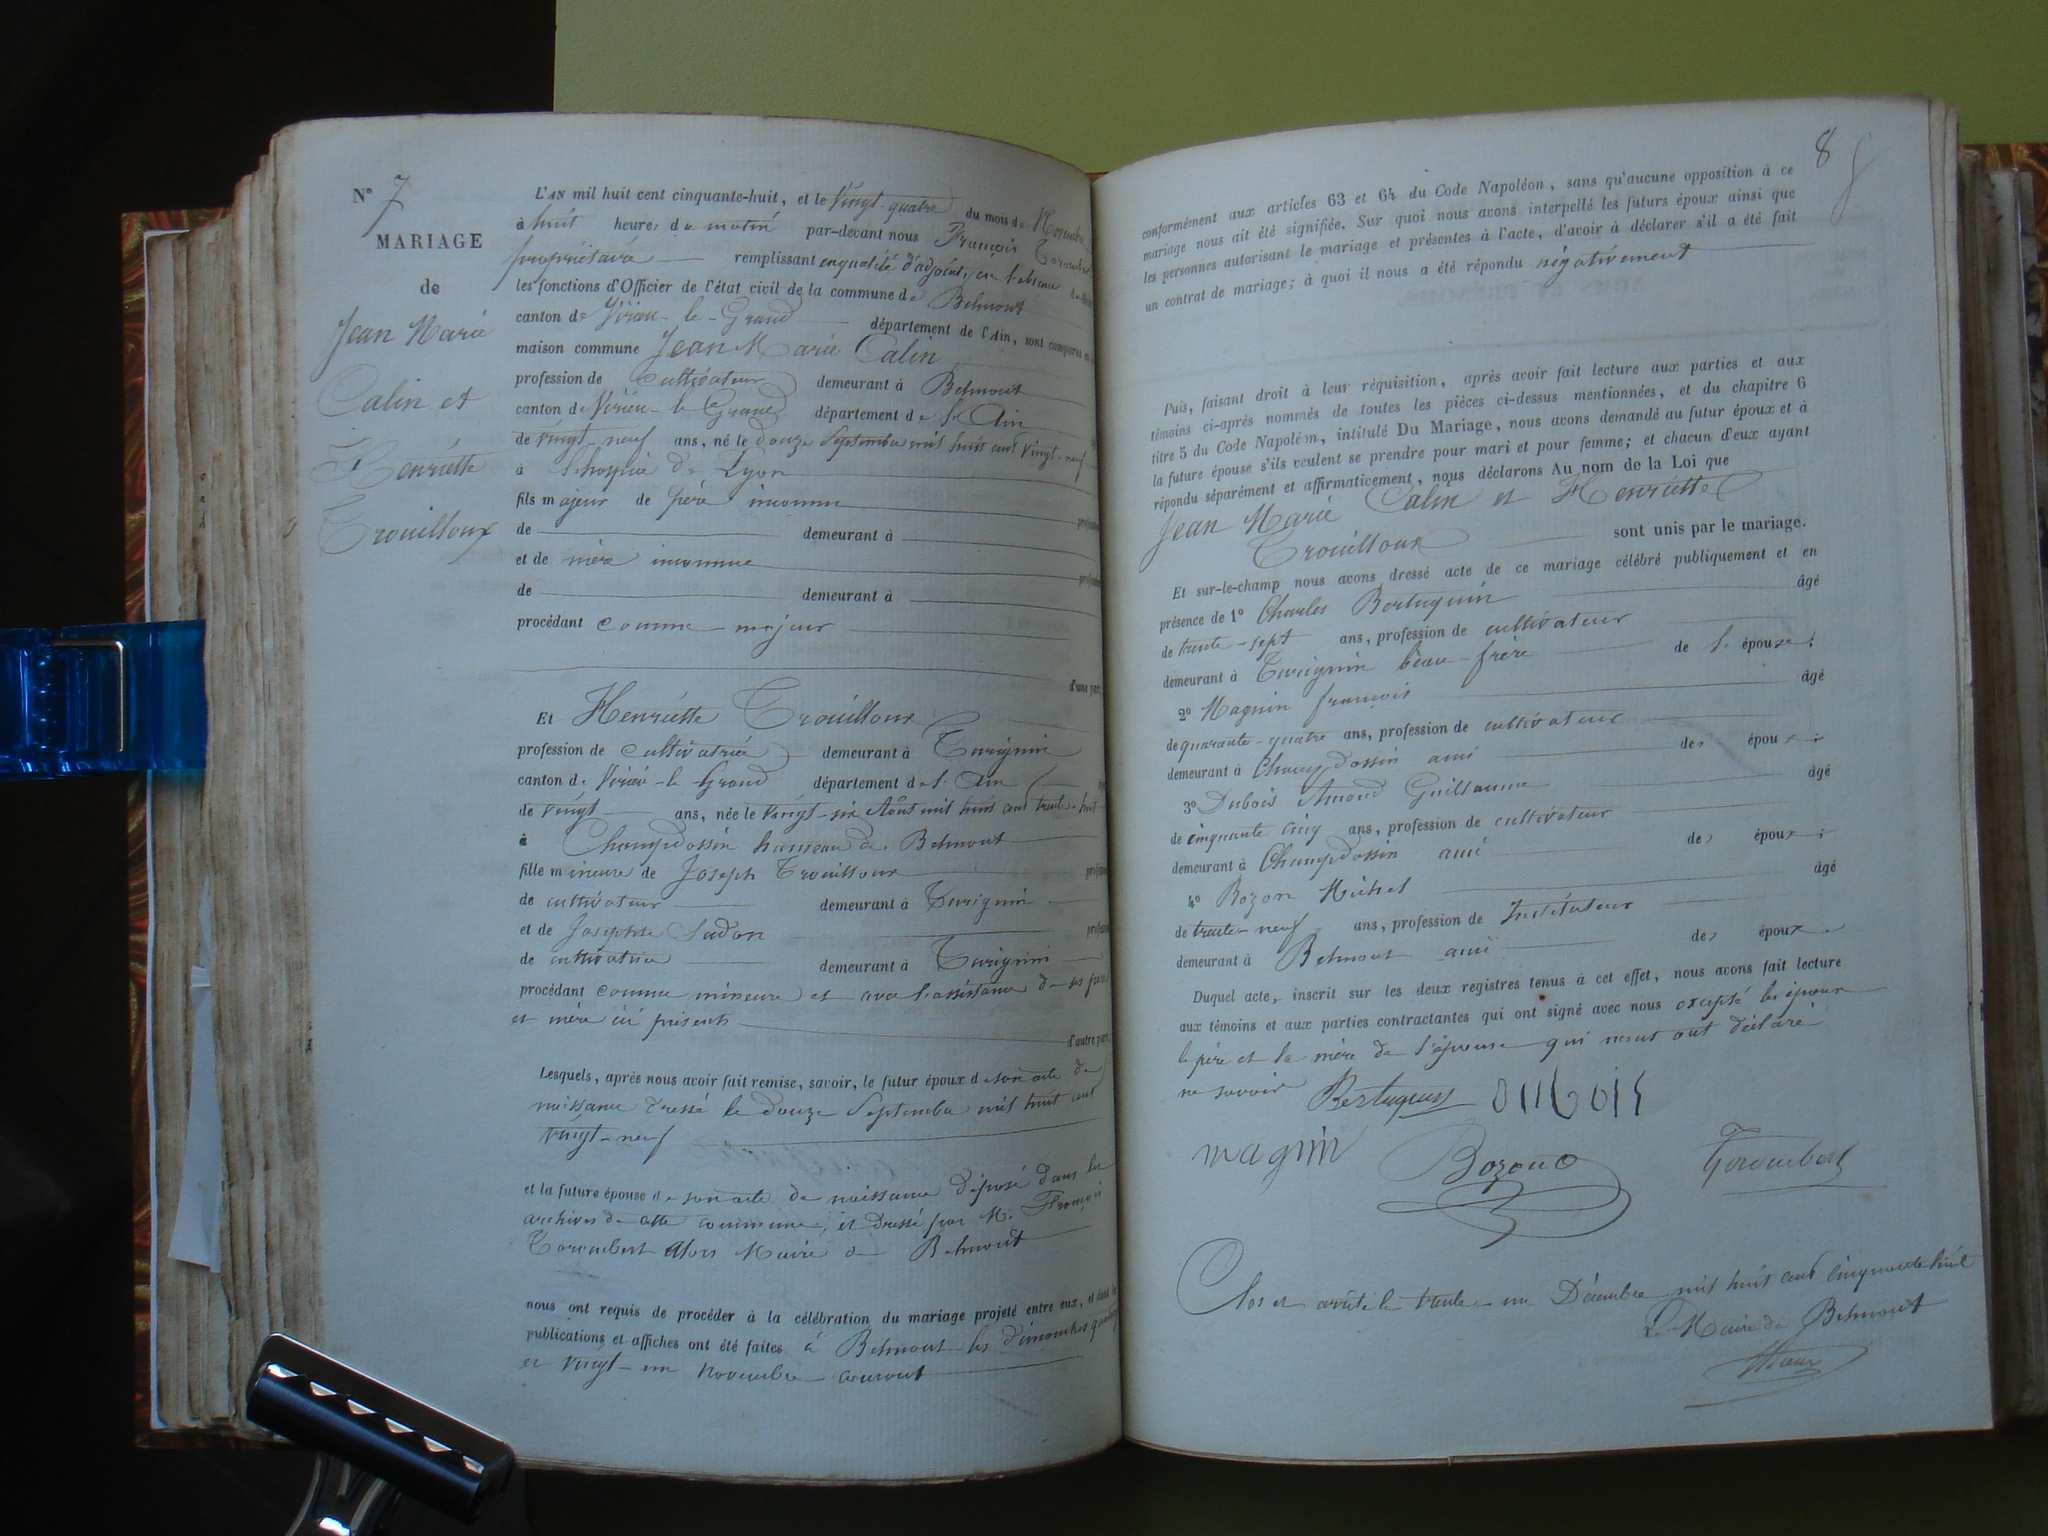 N° 7
MARIAGE
de
Jean Marie
Calin et
Henriette
Trouilloux
L'AN mil huit cent cinquante-huit, et le vingt-quatre du mois de Novembre
à huit heures du matin par-devant nous François Toroubert
propriétaire remplissant en qualité d'adjoint, en l'absence
les fonctions d'Officier de l'état civil de la commune de Belmont
canton de Virieu-le-Grand département de l'Ain, sont comparus en
maison commune Jean Marie Calin
profession de cultivateur demeurant à Belmont
canton de Virieu-le-Grand département de l'Ain
de vingt-neuf ans, né le douze Septembre mil huit cent vingt-neuf
à l'hospice de Lyon
fils majeur de père inconnu
de demeurant à
et de mère inconnue
de demeurant à
procédant comme majeur
d'une part,
Et Henriette Trouilloux
profession de cultivatrice demeurant à
canton de Virieu-le-Grand département de l'Ain
de vingt ans, née le vingt-six Août mil huit cent trente-huit
à Champdossin hameau de Belmont
fille mineure de Joseph Trouilloux
de cultivateur demeurant à
et de Josephte
de cultivatrice demeurant à
procédant comme mineure et avec l'assistance de ses père
et mère ici présents
d'autre part,
Lesquels, après nous avoir fait remise, savoir, le futur époux de son acte de
naissance dressé le douze Septembre mil huit cent
vingt-neuf
et la future épouse de son acte de naissance déposé dans les
archives de cette commune, et dressé par M. François
Toroubert alors Maire de Belmont
nous ont requis de procéder à la célébration du mariage projeté entre eux, et dont les
publications et affiches ont été faites à Belmont les dimanches quatorze
et vingt-un novembre courant
8
conformément aux articles 63 et 64 du Code Napoléon, sans qu'aucune opposition à ce
mariage nous ait été signifiée. Sur quoi nous avons interpellé les futurs époux ainsi que
les personnes autorisant le mariage et présentes à l'acte, d'avoir à déclarer s'il a été fait
un contrat de mariage; à quoi il nous a été répondu négativement
Puis, faisant droit à leur réquisition, après avoir fait lecture aux parties et aux
témoins ci-après nommés de toutes les pièces ci-dessus mentionnées, et du chapitre 6
titre 5 du Code Napoléon, intitulé Du Mariage, nous avons demandé au futur époux et à
la future épouse s'ils veulent se prendre pour mari et pour femme; et chacun d'eux ayant
répondu séparément et affirmativement, nous déclarons Au nom de la Loi que
Jean Marie Calin et Henriette
Trouilloux sont unis par le mariage.
Et sur-le-champ nous avons dressé acte de ce mariage célébré publiquement et en
présence de 1° Charles Bertuquin âgé
de trente-sept ans, profession de cultivateur
demeurant à beau-frère de l'épouse;
2° Magnin françois âgé
de quarante-quatre ans, profession de cultivateur
demeurant à Champdossin ami des époux;
3° Dubois Amand Guillaume âgé
de cinquante cinq ans, profession de cultivateur
demeurant à Champdossin ami des époux;
4° Bozon Michel âgé
de trente-neuf ans, profession de Instituteur
demeurant à Belmont ami des époux
Duquel acte, inscrit sur les deux registres tenus à cet effet, nous avons fait lecture
aux témoins et aux parties contractantes qui ont signé avec nous excepté les époux
le père et la mère de l'épouse qui nous ont déclaré
ne savoir Bertuquin DUBOIS
magnin Bozon Toroubert
Clos et arrêté le trente un Décembre mil huit cent cinquante huit
Le Maire de Belmont